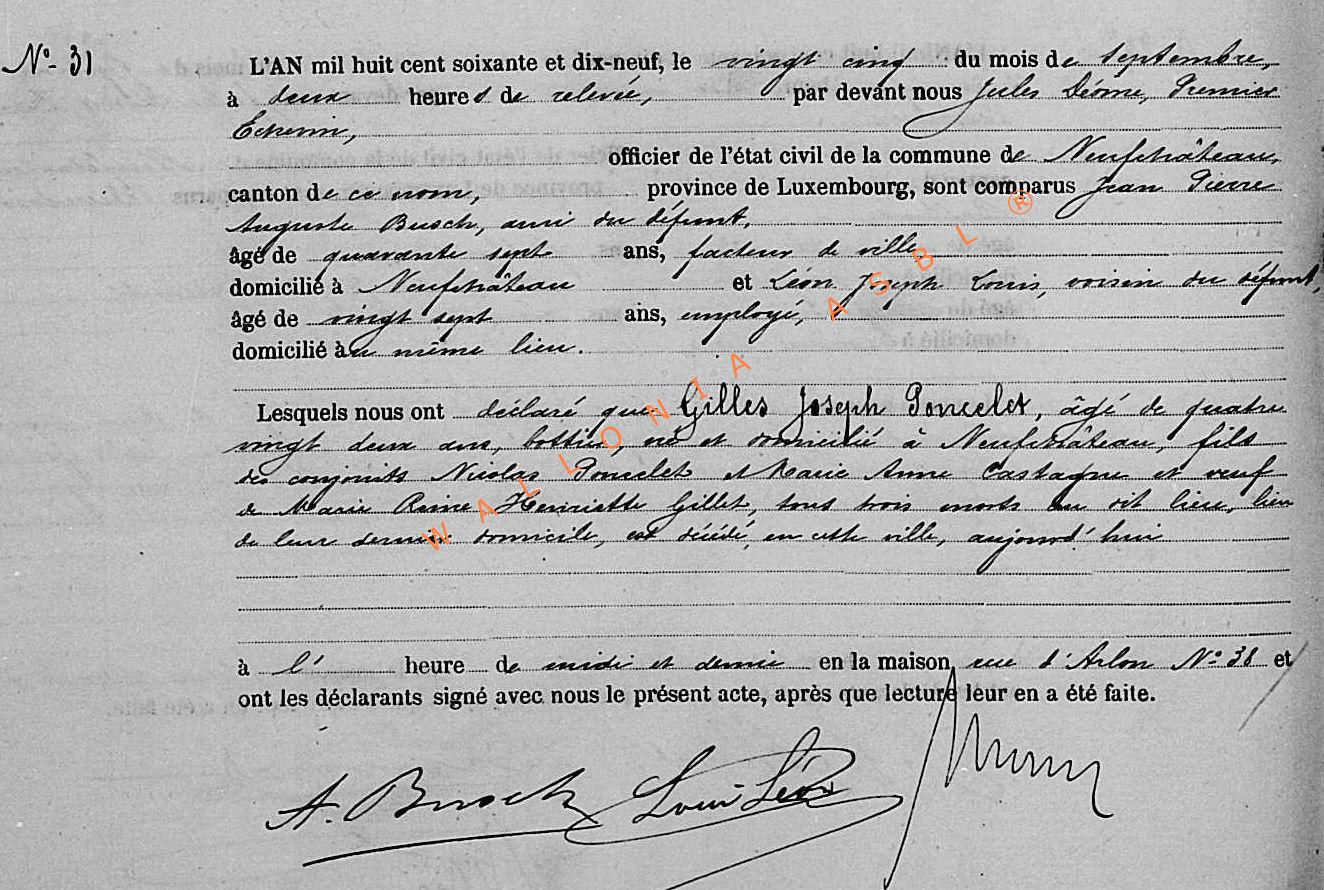 N° 31
L'AN mil huit cent soixante et dix-neuf, le vingt cinq du mois de septembre,
à deux heures de relevée, par devant nous Jules Déome, Premier
Echevin,
officier de l'état civil de la commune de Neufchâteau,
canton de ce nom, province de Luxembourg, sont comparus Jean Pierre
Auguste Busch, ami du défunt,
âgé de quarante sept ans, facteur de ville
domicilié à Neufchâteau et Léon Joseph Louis, voisin du défunt,
âgé de vingt sept ans, employé,
domicilié au même lieu.
Lesquels nous ont déclaré que Gilles Joseph Poncelet, âgé de quatre
vingt deux ans, bottier, né et domicilié à Neufchâteau, fils
des conjoints Nicolas Poncelet et Marie Anne Castagne et veuf
de Marie Reine Henriette Gillet, tous trois morts au dit lieu, lieu
de leur dernier domicile, est décédé, en cette ville, aujourd'hui
à l' heure de midi et demie en la maison, rue d'Arlon N° 38 et
ont les déclarants signé avec nous le présent acte, après que lecture leur en a été faite.
A. Busch Louis Léon
WALLONIA ASBL ®